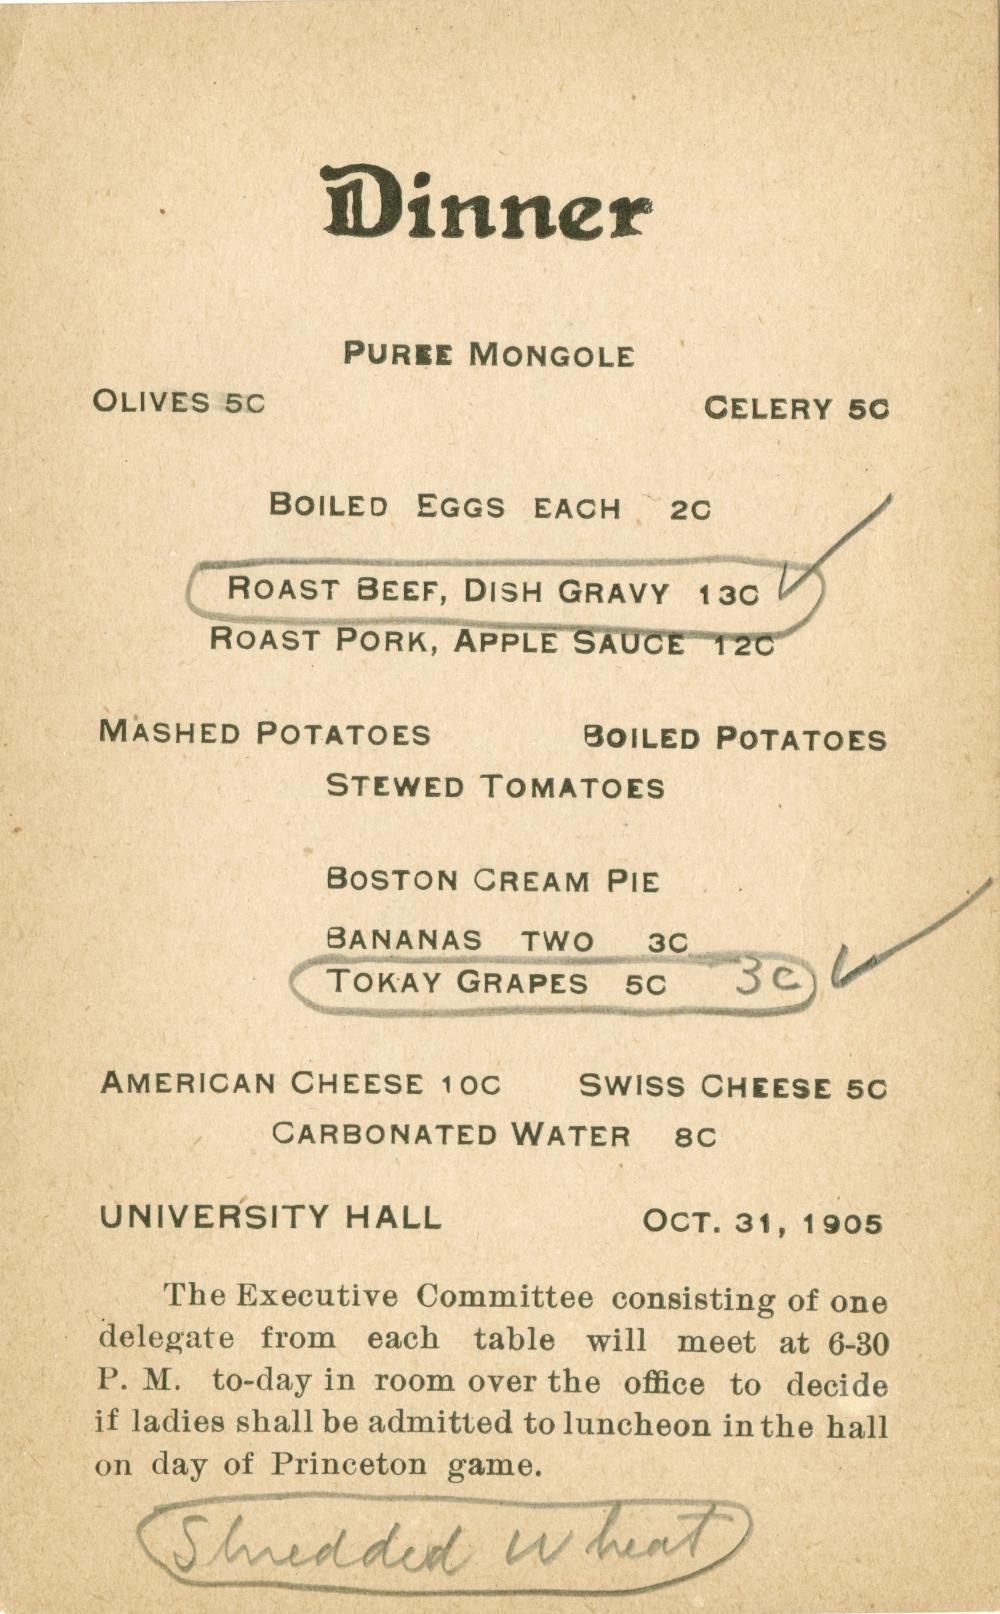 Dinner
PUREE MONGOLE
OLIVES 5C CELERY 5C
BOILED EGGS EACH 2C
ROAST BEEF, DISH GRAVY 13C
ROAST PORK, APPLE SAUCE 12C
MASHED POTATOES BOILED POTATOES
STEWED TOMATOES
BOSTON CREAM PIE
BANANAS TWO 3C
TOKAY GRAPES 5C 3c
AMERICAN CHEESE 10C SWISS CHEESE 5C
CARBONATED WATER 8C
UNIVERSITY HALL OCT. 31, 1905
The Executive Committee consisting of one
delegate from each table will meet at 6-30
P. M. to-day in room over the office to decide
if ladies shall be admitted to luncheon in the hall
on day of Princeton game.
Shredded Wheat